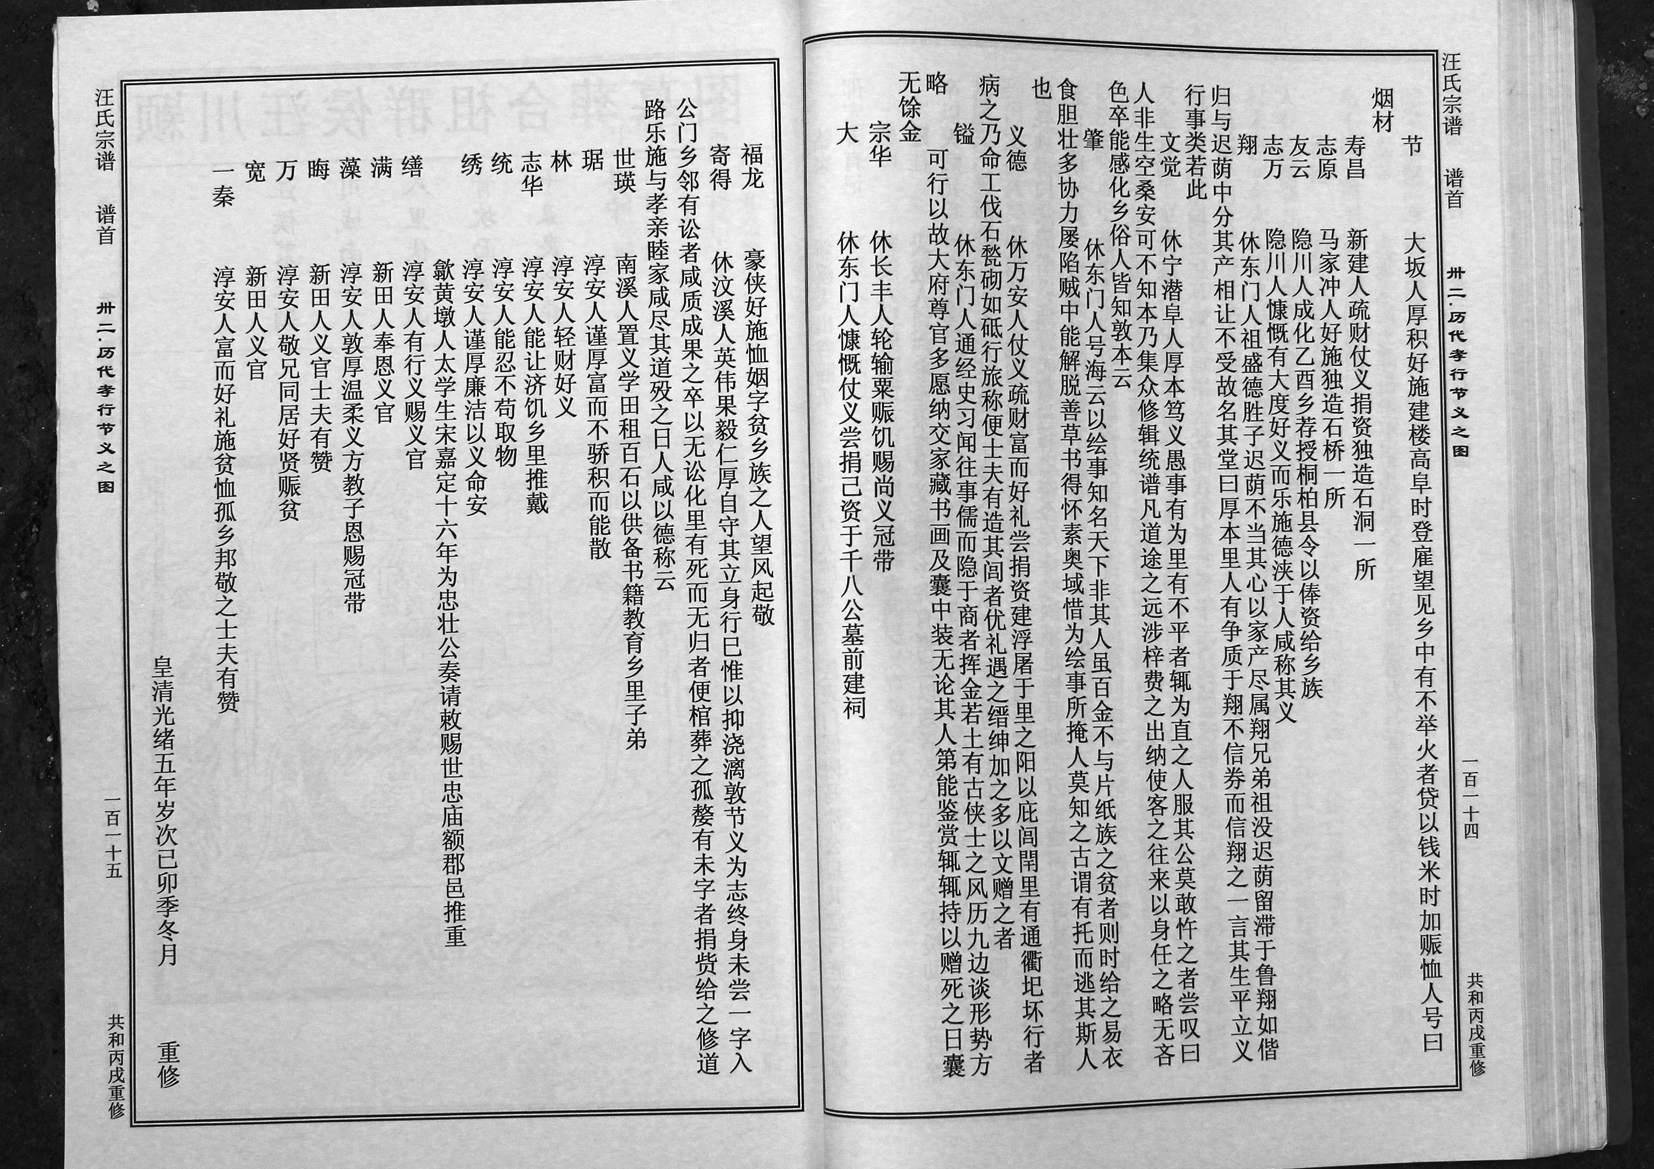 汪氏宗谱 谱首 卅二·历代孝行节义之图 一百一十四 共和丙戌重修
节 大坂人厚积好施建楼高阜时登雇望见乡中有不举火者贷以钱米时加赈恤人号曰
烟材
寿昌 新建人疏财仗义捐资独造石洞一所
志原 马家冲人好施独造石桥一所
友云 隐川人成化乙酉乡荐授桐柏县令以俸资给乡族
志万 隐川人慷慨有大度好义而乐施德浃于人咸称其义
翔 休东门人祖盛德胜子迟荫不当其心以家产尽属翔兄弟祖没迟荫留滞于鲁翔如偕
归与迟荫中分其产相让不受故名其堂曰厚本里人有争质于翔不信券而信翔之一言其生平立义
行事类若此
文觉 休宁潜阜人厚本笃义愚事有为里有不平者辄为直之人服其公莫敢忤之者尝叹曰
人非生空桑安可不知本乃集众修辑统谱凡道途之远涉梓费之出纳使客之往来以身任之略无吝
色卒能感化乡俗人皆知敦本云
肇 休东门人号海云以绘事知名天下非其人虽百金不与片纸族之贫者则时给之易衣
食胆壮多协力屡陷贼中能解脱善草书得怀素奥域惜为绘事所掩人莫知之古谓有托而逃其斯人
也
义德 休万安人仗义疏财富而好礼尝捐资建浮屠于里之阳以庇闾閈里有通衢圯坏行者
病之乃命工伐石甃砌如砥行旅称便士夫有造其闾者优礼遇之缙绅加之多以文赠之者
镒 休东门人通经史习闻往事儒而隐于商者挥金若土有古侠士之风历九边谈形势方
略 可行以故大府尊官多愿纳交家藏书画及囊中装无论其人第能鉴赏辄辄持以赠死之日囊
无馀金
宗华 休长丰人轮输粟赈饥赐尚义冠带
大 休东门人慷慨仗义尝捐己资于千八公墓前建祠
福龙 豪侠好施恤姻字贫乡族之人望风起敬
寄得 休汶溪人英伟果毅仁厚自守其立身行巳惟以抑浇漓敦节义为志终身未尝一字入
公门乡邻有讼者咸质成果之卒以无讼化里有死而无归者便棺葬之孤嫠有未字者捐赀给之修道
路乐施与孝亲睦家咸尽其道殁之日人咸以德称云
世瑛 南溪人置义学田租百石以供备书籍教育乡里子弟
琚 淳安人谨厚富而不骄积而能散
林 淳安人轻财好义
志华 淳安人能让济饥乡里推戴
统 淳安人能忍不苟取物
绣 淳安人谨厚廉洁以义命安
歙黄墩人太学生宋嘉定十六年为忠壮公奏请敕赐世忠庙额郡邑推重
缮 淳安人有行义赐义官
满 新田人奉恩义官
藻 淳安人敦厚温柔义方教子恩赐冠带
晦 新田人义官士夫有赞
万 淳安人敬兄同居好贤赈贫
宽 新田人义官
一秦 淳安人富而好礼施贫恤孤乡邦敬之士夫有赞
皇清光绪五年岁次已卯季冬月 重修
汪氏宗谱 谱首 卅二·历代孝行节义之图 一百一十五 共和丙戌重修